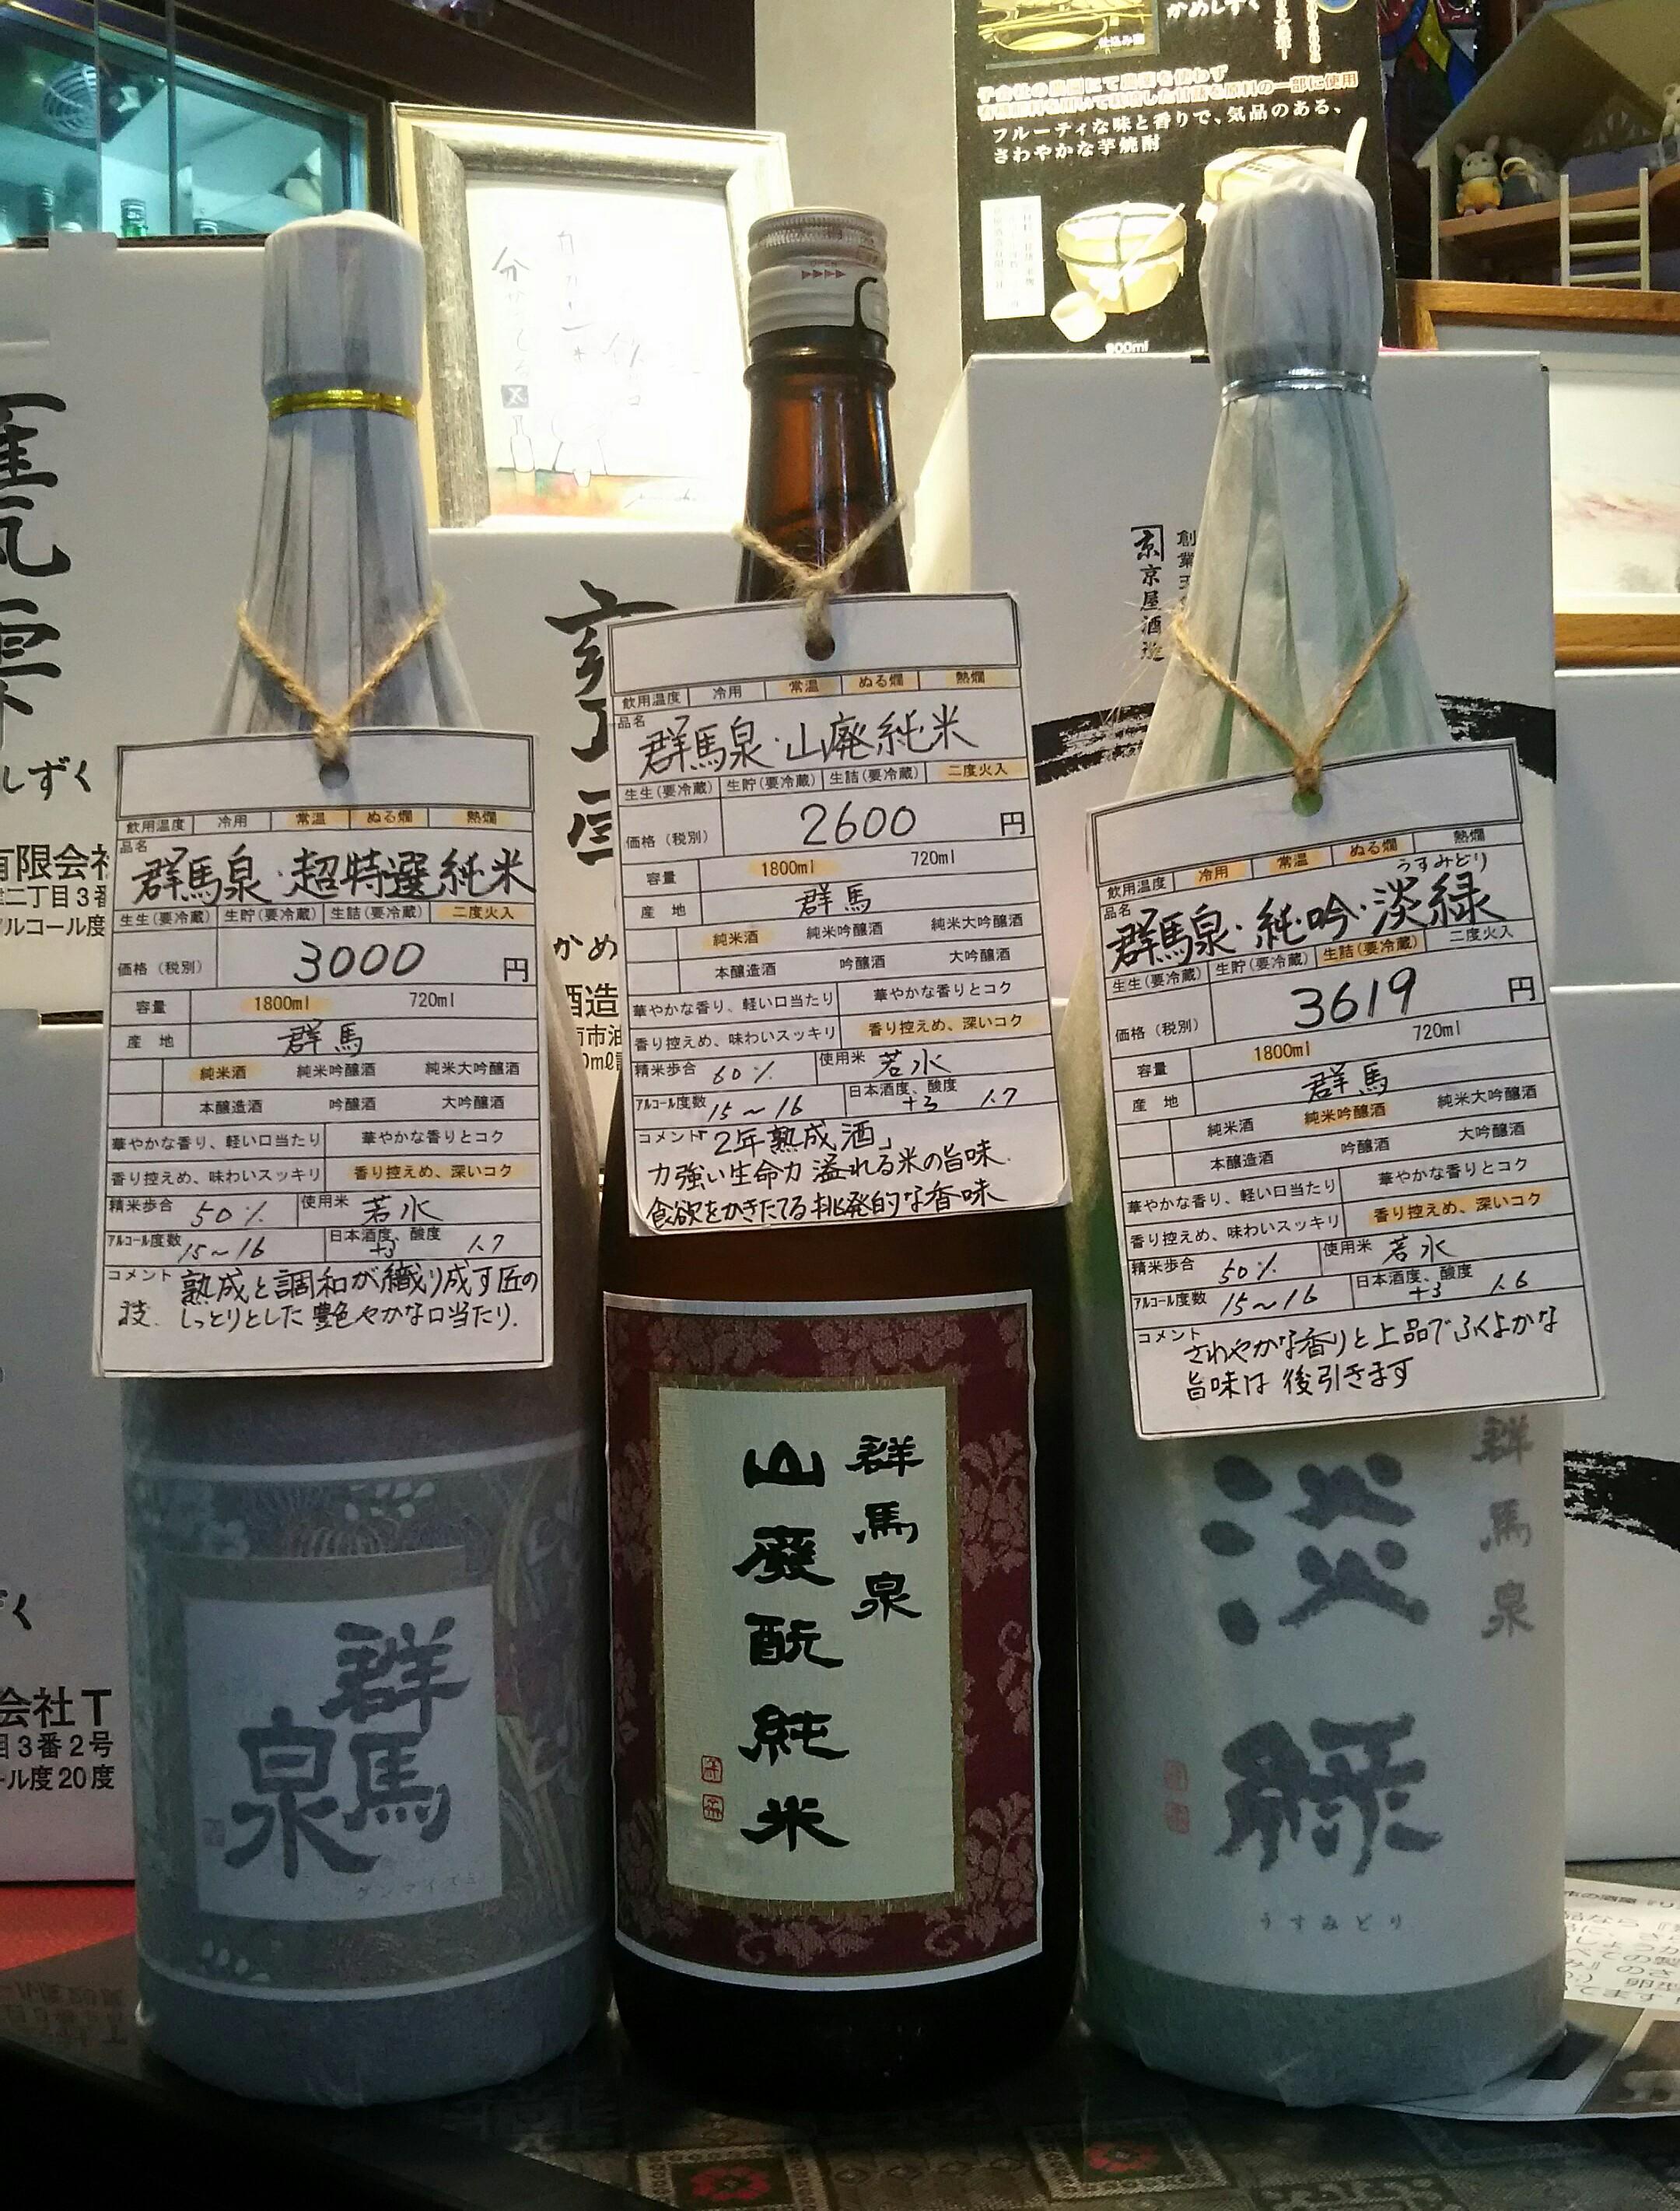 かめしずく
仕込み甕
子会社の農園にて農薬を使わず
有機肥料を用いて栽培した甘藷を原料の一部に使用
フルーティな味と香りで、気品のある、
さわやかな芋焼酎
900ml
甕
雫
京屋酒造
しずく
有限会社
二丁目3番
アルコール度
会社T
目3番2号
ール度20度
飲用温度 冷用 常温 ぬる燗 熱燗
品名
群馬泉・超特選純米
生生(要冷蔵) 生貯(要冷蔵) 生詰(要冷蔵) 二度火入
価格(税別) 3000 円
容量 1800ml 720ml
産 地 群馬
純米酒 純米吟醸酒 純米大吟醸酒
本醸造酒 吟醸酒 大吟醸酒
華やかな香り、軽い口当たり 華やかな香りとコク
香り控えめ、味わいスッキリ 香り控えめ、深いコク
精米歩合 50% 使用米 若水
アルコール度数 15~16 日本酒度、酸度 +3 1.7
コメント 熟成と調和が織り成す匠の
技. しっとりとした艶やかな口当たり.
群馬
泉
グンマイズミ
飲用温度 冷用 常温 ぬる燗 熱燗
品名
群馬泉・山廃純米
生生(要冷蔵) 生貯(要冷蔵) 生詰(要冷蔵) 二度火入
価格(税別) 2600 円
容量 1800ml 720ml
産 地 群馬
純米酒 純米吟醸酒 純米大吟醸酒
本醸造酒 吟醸酒 大吟醸酒
華やかな香り、軽い口当たり 華やかな香りとコク
香り控えめ、味わいスッキリ 香り控えめ、深いコク
精米歩合 60% 使用米 若水
アルコール度数 15~16 日本酒度、酸度 +3 1.7
コメント 「2年熟成酒」
力強い生命力溢れる米の旨味.
食欲をかきたてる挑発的な香味
群馬泉
山廃酛純米
飲用温度 冷用 常温 ぬる燗 熱燗
品名
うすみどり
群馬泉・純吟・淡緑
生生(要冷蔵) 生貯(要冷蔵) 生詰(要冷蔵) 二度火入
価格(税別) 3619 円
容量 1800ml 720ml
産 地 群馬
純米酒 純米吟醸酒 純米大吟醸酒
本醸造酒 吟醸酒 大吟醸酒
華やかな香り、軽い口当たり 華やかな香りとコク
香り控えめ、味わいスッキリ 香り控えめ、深いコク
精米歩合 50% 使用米 若水
アルコール度数 15~16 日本酒度、酸度 +3 1.6
コメント さわやかな香りと上品でふくよかな
旨味は後引きます
群馬泉
淡緑
うすみどり